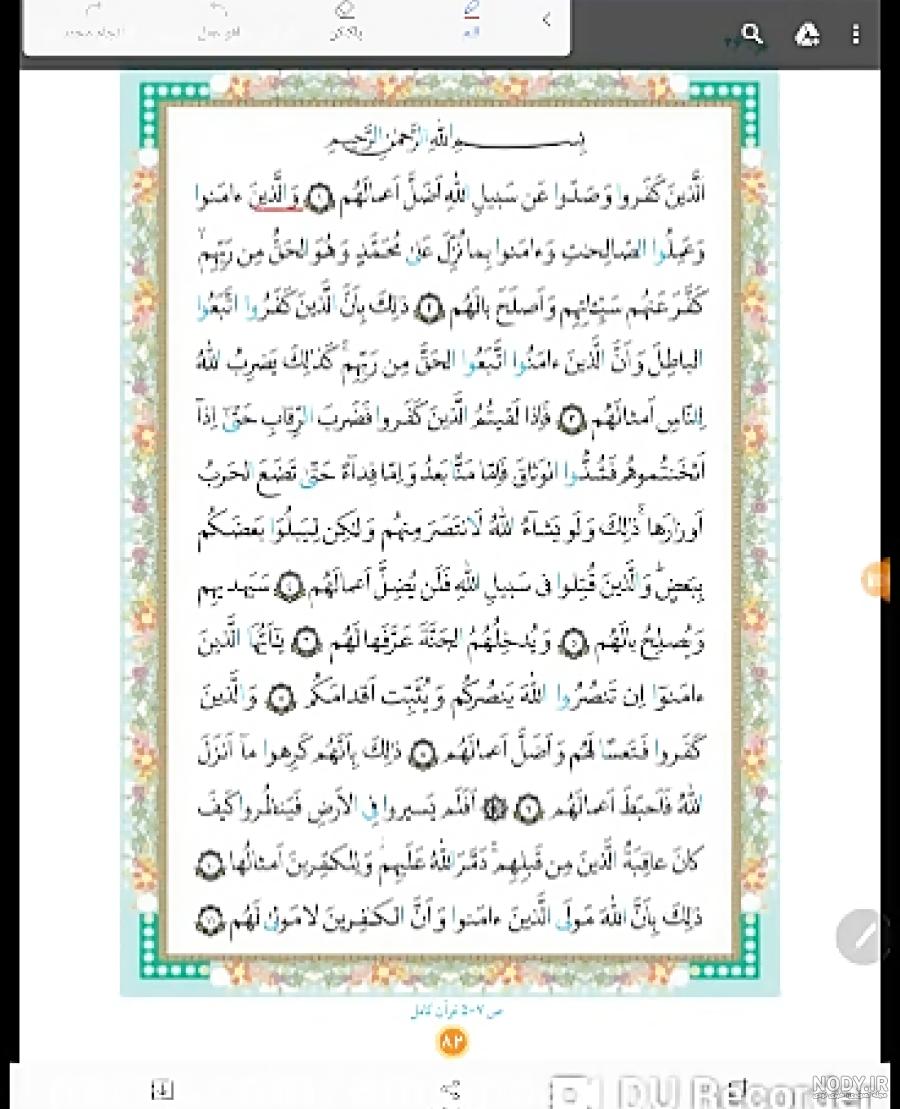 قلم
پاک‌کن
بِسمِ اللّٰهِ الرَّحمٰنِ الرَّحيمِ
اَلَّذينَ كَفَروا وَ صَدّوا عَن سَبيلِ اللّٰهِ اَضَلَّ اَعمالَهُم ١ وَ الَّذينَ ءامَنوا
وَ عَمِلُوا الصّالِحٰتِ وَ ءامَنوا بِما نُزِّلَ عَلىٰ مُحَمَّدٍ وَ هُوَ الحَقُّ مِن رَبِّهِم ۙ
كَفَّرَ عَنهُم سَيِّـٔاتِهِم وَ اَصلَحَ بالَهُم ٢ ذٰلِكَ بِاَنَّ الَّذينَ كَفَرُوا اتَّبَعُوا
الباطِلَ وَ اَنَّ الَّذينَ ءامَنُوا اتَّبَعُوا الحَقَّ مِن رَبِّهِم ۚ كَذٰلِكَ يَضرِبُ اللّٰهُ
لِلنّاسِ اَمثالَهُم ٣ فَاِذا لَقيتُمُ الَّذينَ كَفَروا فَضَربَ الرِّقابِ حَتّىٰٓ اِذآ
اَثخَنتُموهُم فَشُدُّوا الوَثاقَ فَاِمّا مَنًّا بَعدُ وَ اِمّا فِدآءً حَتّىٰ تَضَعَ الحَربُ
اَوزارَها ۚ ذٰلِكَ وَ لَو يَشآءُ اللّٰهُ لَانتَصَرَ مِنهُم وَ لٰكِن لِيَبلُوَا بَعضَكُم
بِبَعضٍ ۗ وَ الَّذينَ قُتِلوا فى سَبيلِ اللّٰهِ فَلَن يُضِلَّ اَعمالَهُم ٤ سَيَهديهِم
وَ يُصلِحُ بالَهُم ٥ وَ يُدخِلُهُمُ الجَنَّةَ عَرَّفَها لَهُم ٦ يٰٓاَيُّهَا الَّذينَ
ءامَنوٓا اِن تَنصُرُوا اللّٰهَ يَنصُركُم وَ يُثَبِّت اَقدامَكُم ٧ وَ الَّذينَ
كَفَروا فَتَعسًا لَهُم وَ اَضَلَّ اَعمالَهُم ٨ ذٰلِكَ بِاَنَّهُم كَرِهوا مآ اَنزَلَ
اللّٰهُ فَاَحبَطَ اَعمالَهُم ٩ ۞ اَفَلَم يَسيروا فِى الاَرضِ فَيَنظُروا كَيفَ
كانَ عاقِبَةُ الَّذينَ مِن قَبلِهِم ۚ دَمَّرَ اللّٰهُ عَلَيهِم ۖ وَ لِلكٰفِرينَ اَمثالُها ١٠
ذٰلِكَ بِاَنَّ اللّٰهَ مَولَى الَّذينَ ءامَنوا وَ اَنَّ الكٰفِرينَ لا مَولىٰ لَهُم ١١
ص ٥٠٧ قرآن کامل
٨٢
DU Recorder
NODY.IR